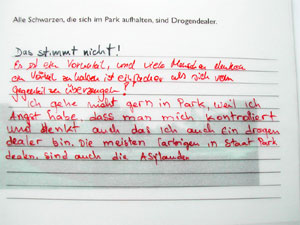 Alle Schwarzen, die sich im Park aufhalten, sind Drogendealer.
Das stimmt nicht!
Es ist ein Vorurteil, und viele Menschen denken
ein zu haben ist einfacher als sich vom
Gegenteil zu überzeugen!
Ich gehe nicht gern in Park, weil ich
Angst habe, dass man mich kontroliert
und denkt auch das ich auch ein drogen
dealer bin. Die meisten farbigen in statt Park
dealen. sind auch die Asylanden